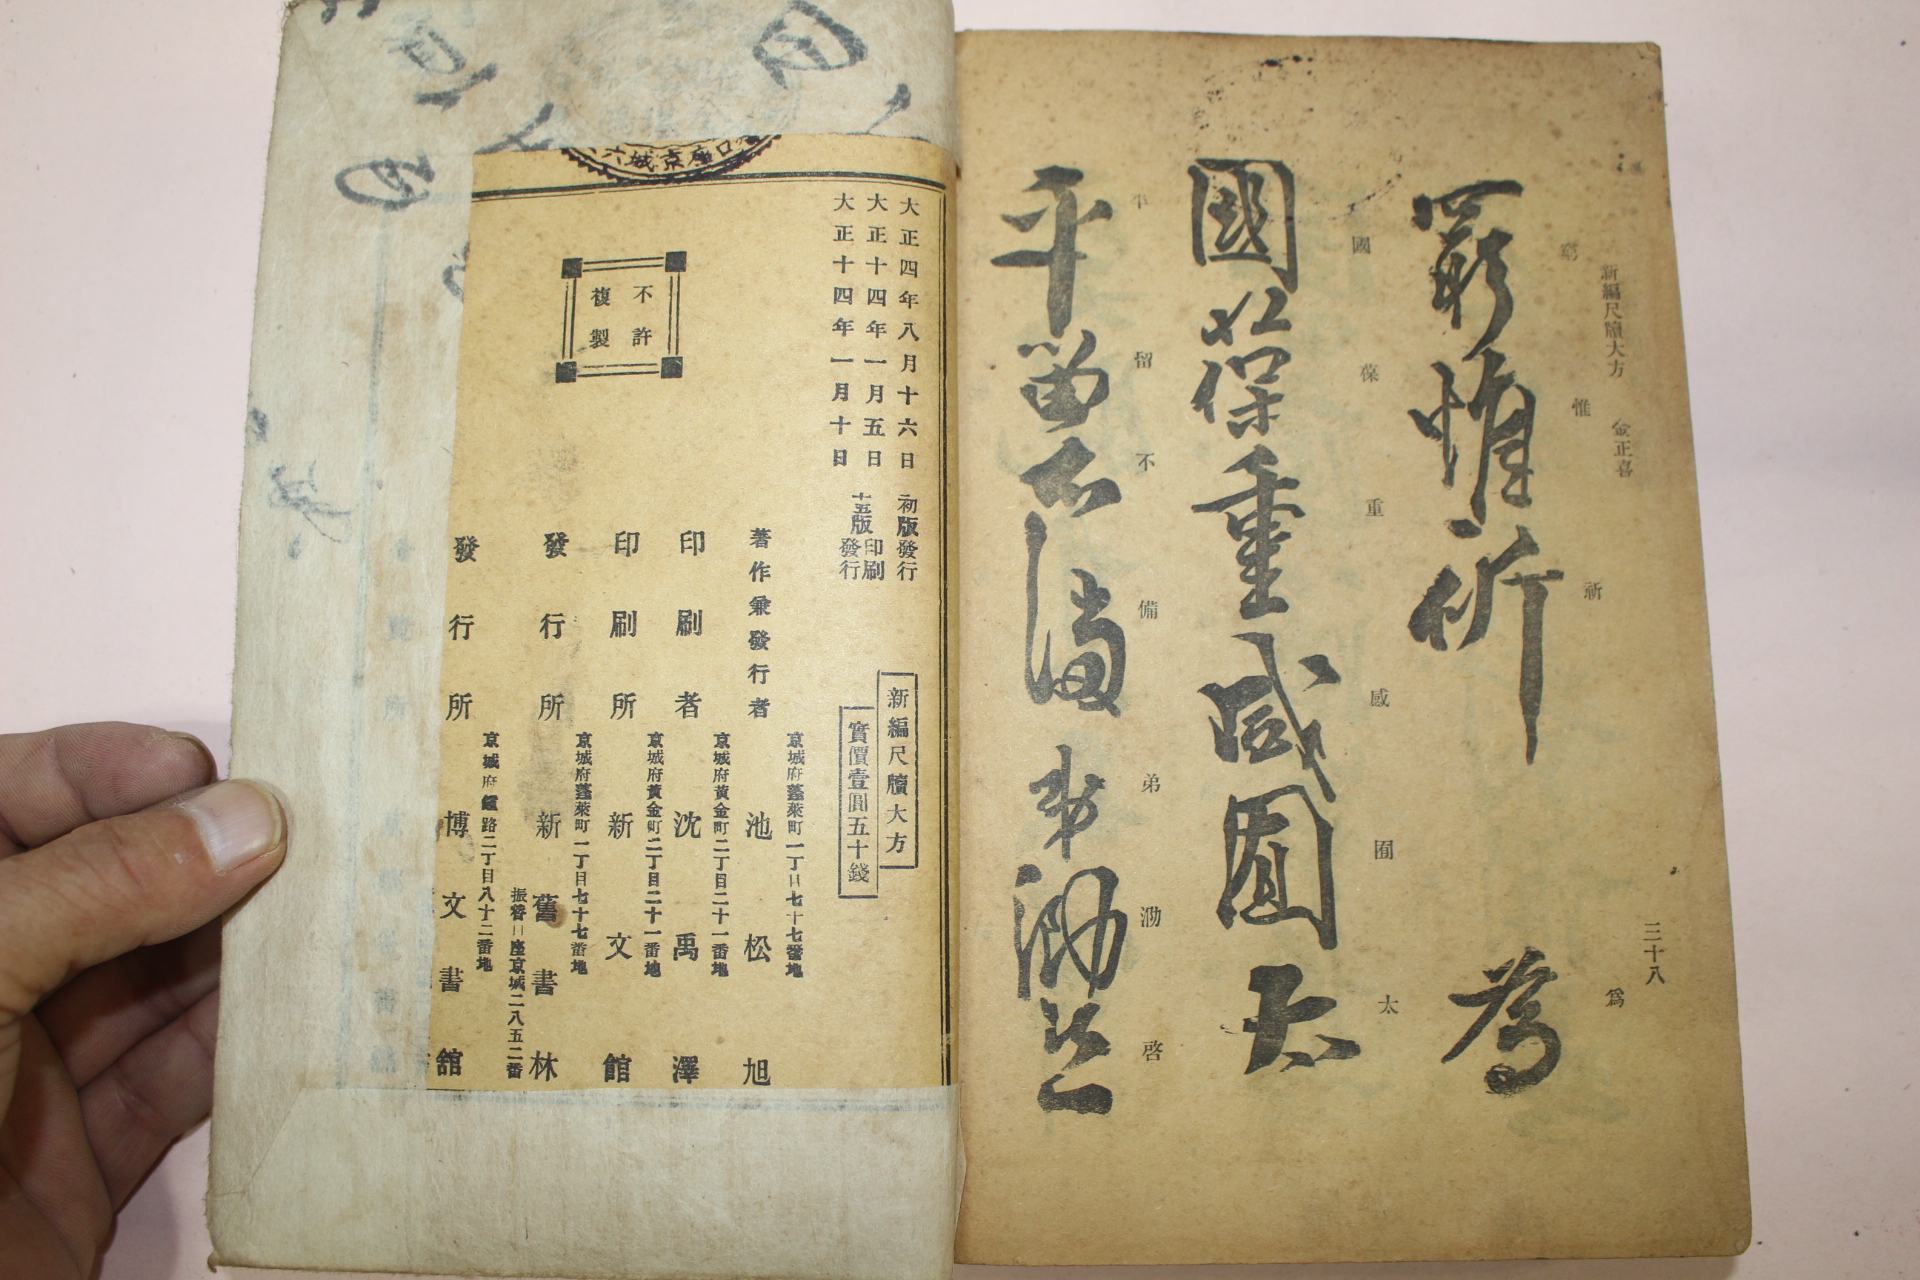 新編尺牘大方 金正喜
三十八
窮惟祈 爲
窮 惟 祈 爲
國葆重感囿太
國 葆 重 感 囿 太
平留不備 弟泐啓
平 留 不 備 弟 泐 啓
大正四年八月十六日 初版發行
大正十四年一月五日 十五版印刷
大正十四年一月十日 發行
不許
複製
新編尺牘大方
實價壹圓五十錢
京城府蓬萊町一丁目七十七番地
著作兼發行者 池松旭
京城府黃金町二丁目二十一番地
印刷者 沈禹澤
京城府黃金町二丁目二十一番地
印刷所 新文館
京城府蓬萊町一丁目七十七番地
發行所 新舊書林
振替口座京城二八五二番
京城府鐘路二丁目八十二番地
發行所 博文書舘